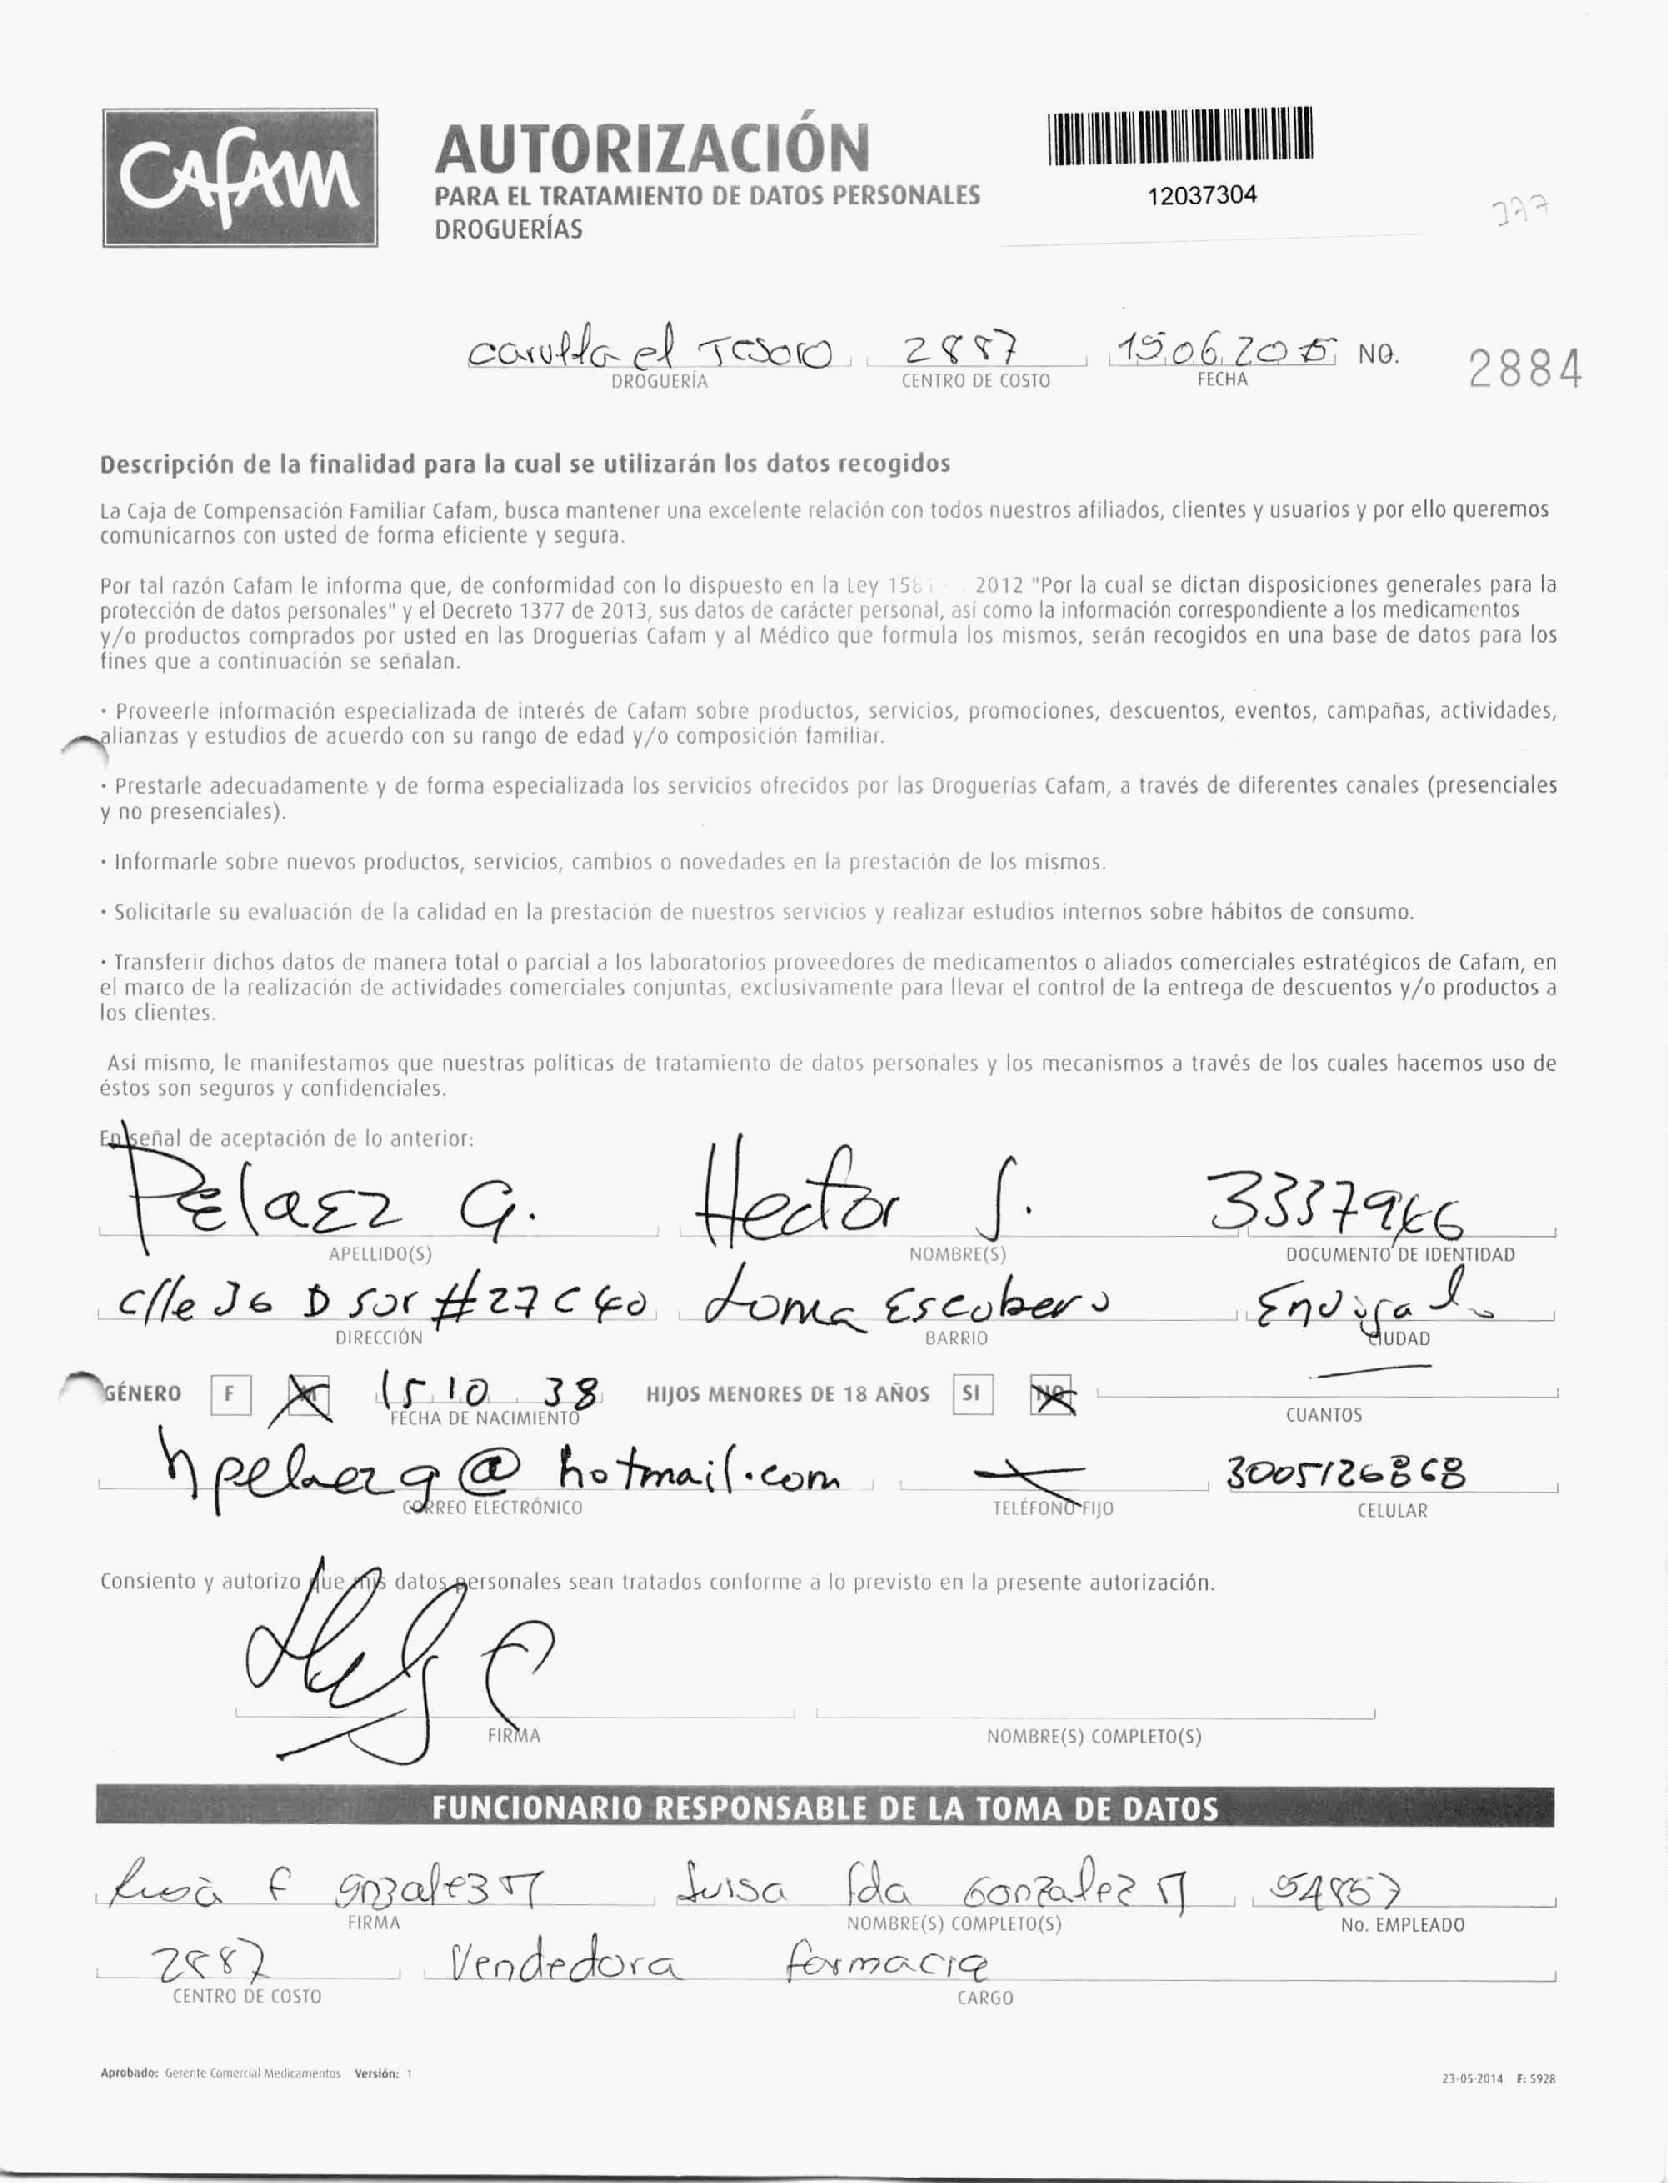 Cafam
AUTORIZACIÓN
PARA EL TRATAMIENTO DE DATOS PERSONALES
DROGUERÍAS
12037304
carulla el Tesoro 2887 NO. 2884
DROGUERÍA CENTRO DE COSTO FECHA
Descripción de la finalidad para la cual se utilizarán los datos recogidos
La Caja de Compensación Familiar Cafam, busca mantener una excelente relación con todos nuestros afiliados, clientes y usuarios y por ello queremos
comunicarnos con usted de forma eficiente y segura.
Por tal razón Cafam le informa que, de conformidad con lo dispuesto en la Ley 2012 "Por la cual se dictan disposiciones generales para la
protección de datos personales" y el Decreto 1377 de 2013, sus datos de carácter personal, así como la información correspondiente a los medicamentos
y/o productos comprados por usted en las Droguerías Cafam y al Médico que formula los mismos, serán recogidos en una base de datos para los
fines que a continuación se señalan.
· Proveerle información especializada de interés de Cafam sobre productos, servicios, promociones, descuentos, eventos, campañas, actividades,
alianzas y estudios de acuerdo con su rango de edad y/o composición familiar.
· Prestarle adecuadamente y de forma especializada los servicios ofrecidos por las Droguerías Cafam, a través de diferentes canales (presenciales
y no presenciales).
· Informarle sobre nuevos productos, servicios, cambios o novedades en la prestación de los mismos.
· Solicitarle su evaluación de la calidad en la prestación de nuestros servicios y realizar estudios internos sobre hábitos de consumo.
· Transferir dichos datos de manera total o parcial a los laboratorios proveedores de medicamentos o aliados comerciales estratégicos de Cafam, en
el marco de la realización de actividades comerciales conjuntas, exclusivamente para llevar el control de la entrega de descuentos y/o productos a
los clientes.
Así mismo, le manifestamos que nuestras políticas de tratamiento de datos personales y los mecanismos a través de los cuales hacemos uso de
éstos son seguros y confidenciales.
En señal de aceptación de lo anterior:
Pelaez G. Hector J.
APELLIDO(S) NOMBRE(S) DOCUMENTO DE IDENTIDAD
clle 36 D sur #27 C 40 Loma Escobero
DIRECCIÓN BARRIO CIUDAD
GÉNERO F 15 10 38 HIJOS MENORES DE 18 AÑOS SI NO
FECHA DE NACIMIENTO CUANTOS
hpelaezg@hotmail.com 3005126868
CORREO ELECTRÓNICO TELÉFONO FIJO CELULAR
Consiento y autorizo que mis datos personales sean tratados conforme a lo previsto en la presente autorización.
FIRMA NOMBRE(S) COMPLETO(S)
FUNCIONARIO RESPONSABLE DE LA TOMA DE DATOS
Luisa F Gonzalez M Luisa Fda Gonzalez M 54867
FIRMA NOMBRE(S) COMPLETO(S) No. EMPLEADO
2887 Vendedora farmacia
CENTRO DE COSTO CARGO
Aprobado: Gerente Comercial Medicamentos Versión: 1 23-05-2014 F: 5928